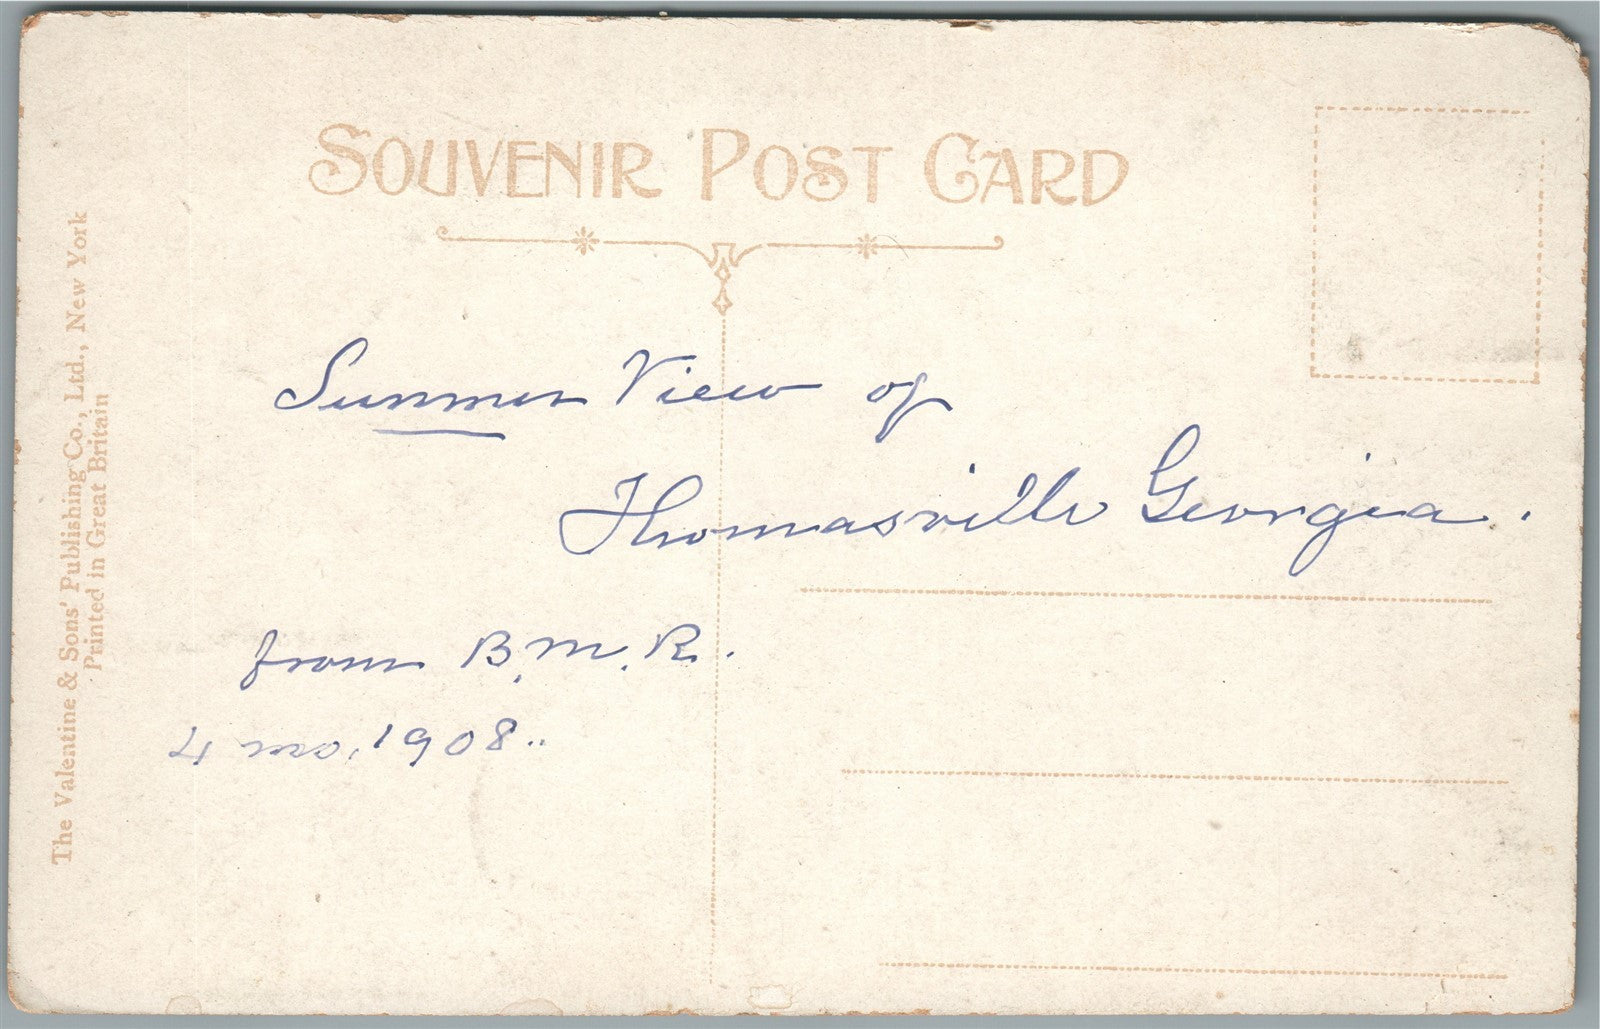 SOUVENIR POST CARD
Summer View of
Thomasville Georgia.
from B.M.R.
4 mo. 1908..
The Valentine & Sons' Publishing Co., Ltd., New York
Printed in Great Britain